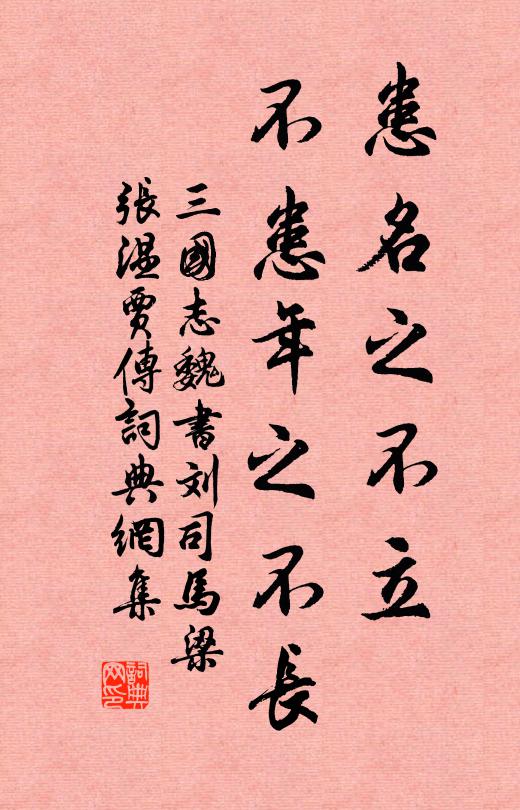 患名之不立
不患年之不長
三國志魏書刘司馬梁
張温賈傳詞典網集
詞典网印